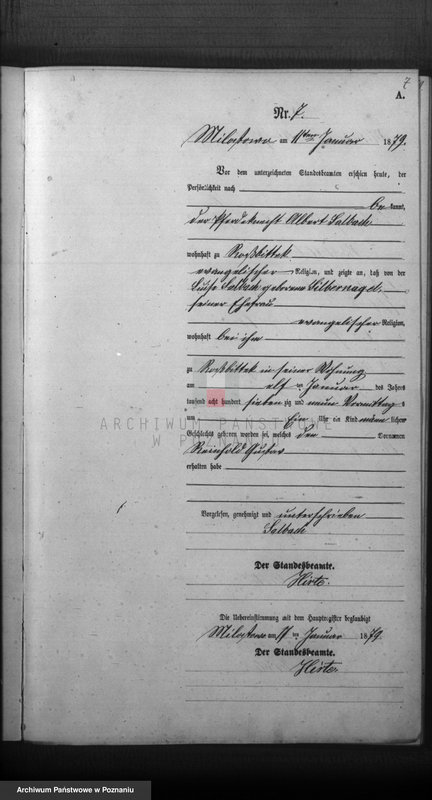 7
A.
Nr. 7.
Milostowo am 11ten Januar 1879.
Vor dem unterzeichneten Standesbeamten erschien heute, der
Persönlichkeit nach
be kannt,
der Pferdeknecht Albert Salbach
wohnhaft zu Roßbittek
evangelischer Religion, und zeigte an, daß von der
Luise Salbach geborene Silbernagel,
seiner Ehefrau
evangelischer Religion,
wohnhaft bei ihm
zu Roßbittek in seiner Wohnung
am elf ten Januar des Jahres
tausend acht hundert sieben zig und neun Vormittag s
um Ein Uhr ein Kind männ lichen
Geschlechts geboren worden sei, welches den Vornamen
Reinhold Gustav
erhalten habe
ARCHIWUM PAŃSTWOWE
W POZNANIU
Vorgelesen, genehmigt und unterschrieben
Salbach
Der Standesbeamte.
Hirte.
Die Uebereinstimmung mit dem Hauptregister beglaubigt
Milostowo am 11 ten Januar 1879
Der Standesbeamte.
Hirte.
Archiwum Państwowe w Poznaniu